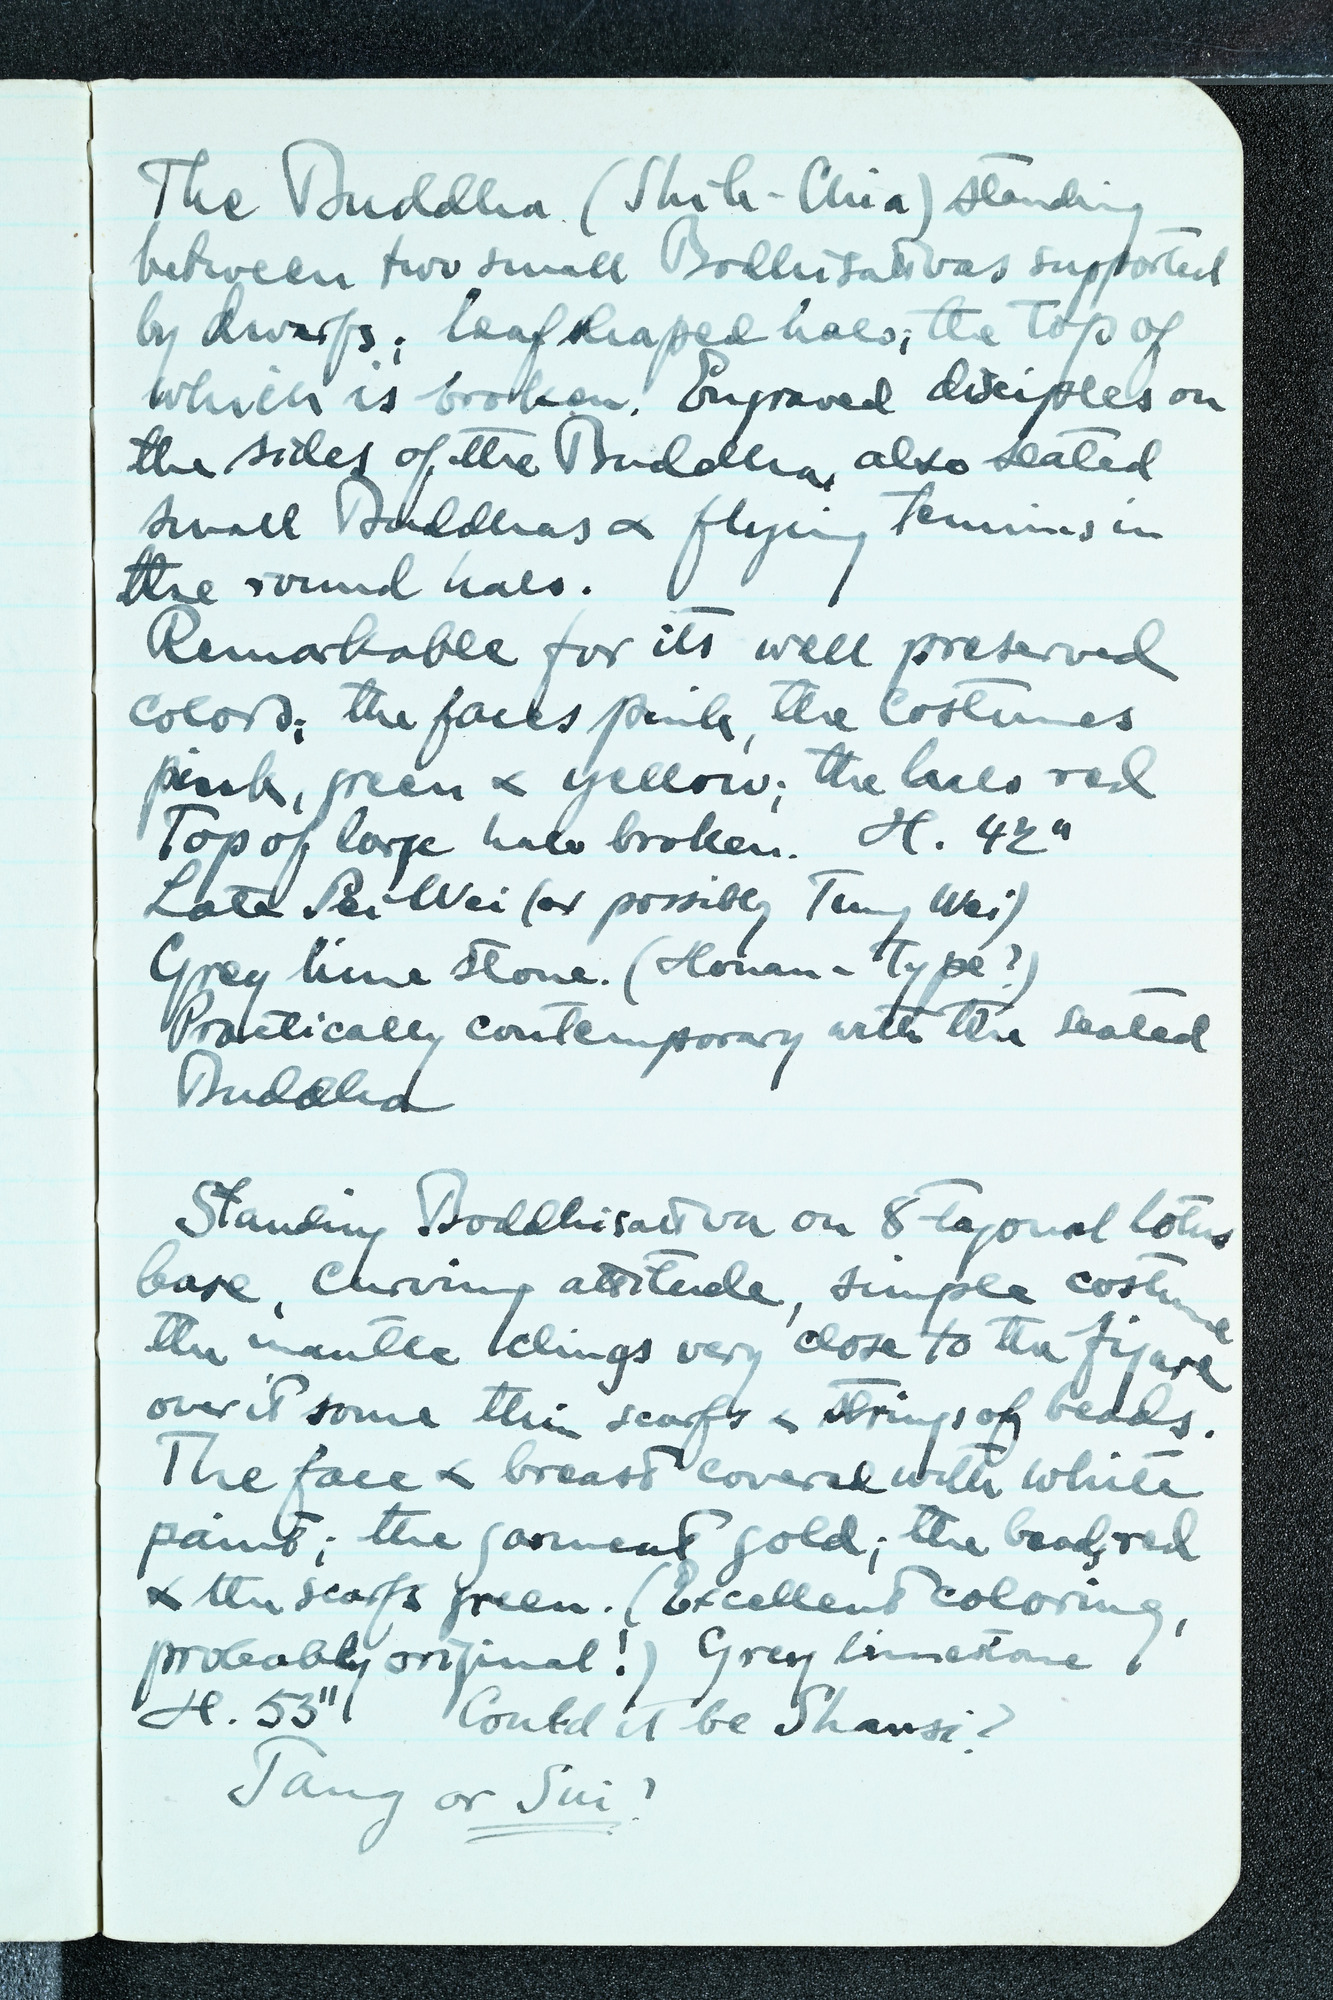 The Buddha (Shih-Chia) standing
between two small Bodhisattvas supported
by dwarfs; leafshaped halo; the top of
which is broken. Engraved disciples on
the sides of the Buddha, also seated
small Buddhas & flying in
the round halo.
Remarkable for its well preserved
colors; the faces pink, the costumes
pink, green & yellow; the halo red
Top of large halo broken. H. 42"
Late Pei Wei (or possibly Tung Wei)
Grey lime stone. (Honan-type?)
Practically contemporary with the seated
Buddha
Standing Boddhisattva on 8-tagonal lotus
base, curving attitude, simple costume
the mantle clings very close to the figure
over it some thin scarfs & strings of beads.
The face & breast covered with white
paint; the garment gold; the beads red
& the scarfs green. (Excellent coloring,
probably original!) Grey limestone
H. 53" Could it be Shansi?
Tang or Sui?